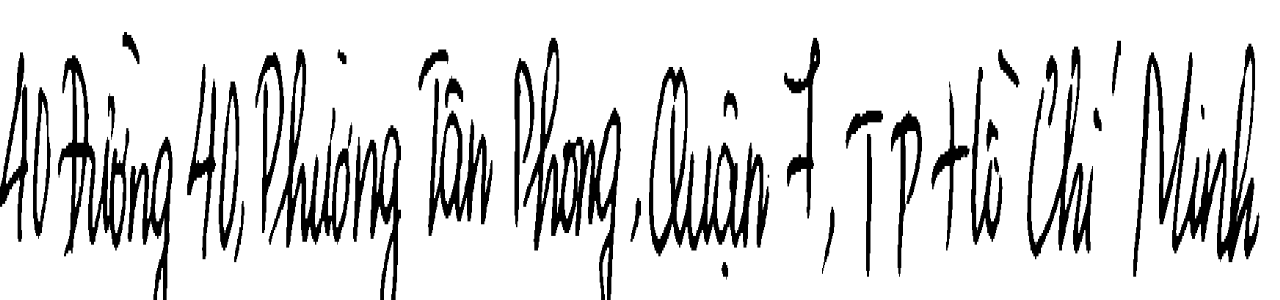 40 Đường 40, Phường Tân Phong, Quận 7, TP Hồ Chí Minh